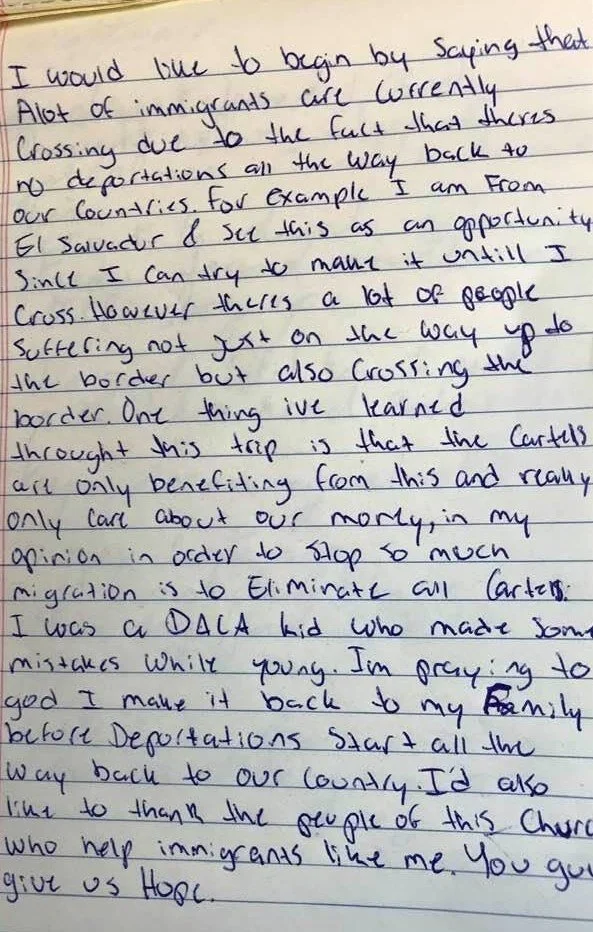 I would like to begin by Saying that
Alot of immigrants are Currently
Crossing due to the fact that theres
no deportations all the way back to
our Countries. For example I am From
El Salvador & see this as an opportunity
Since I can try to make it untill I
Cross. However theres a lot of people
Suffering not just on the way up to
the border but also Crossing the
border. One thing ive learned
throught this trip is that the Cartels
are only benefiting from this and really
only Care about our money, in my
opinion in order to stop so much
migration is to Eliminate all Cartels.
I was a DACA kid who made Some
mistakes while young. Im praying to
god I make it back to my Family
before Deportations Start all the
way back to our Country. I'd also
like to thank the people of this Churc
who help immigrants like me. You guy
give us Hope.